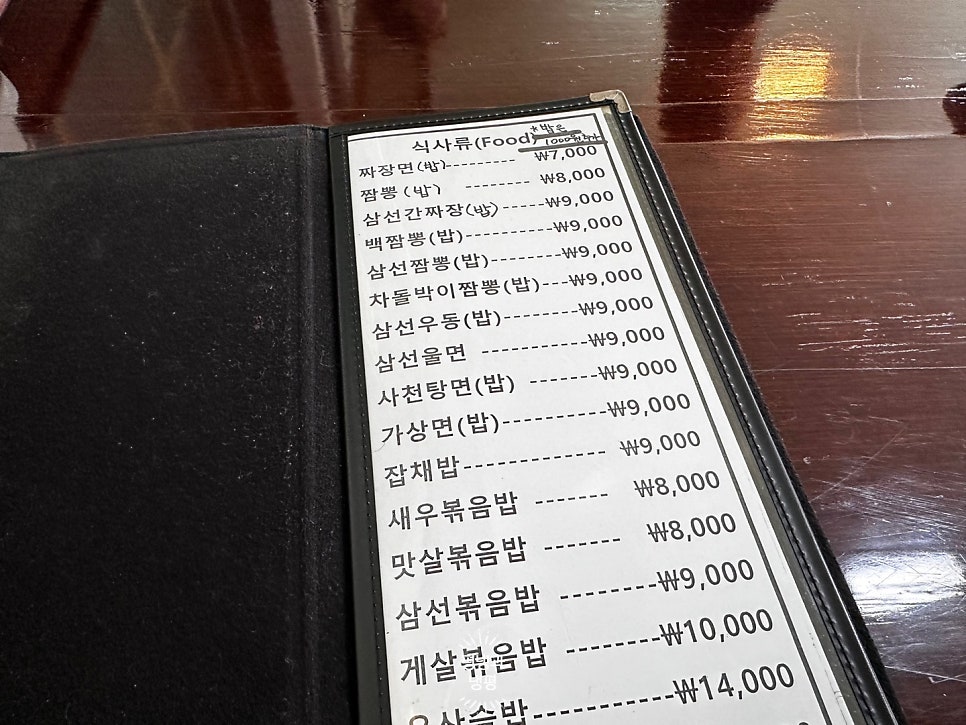 식사류(Food) *밥은
1000원추가
짜장면(밥)--------- ₩7,000
짬뽕(밥) -------- ₩8,000
삼선간짜장(밥)-----₩9,000
백짬뽕(밥)----------₩9,000
삼선짬뽕(밥)--------₩9,000
차돌박이짬뽕(밥)---₩9,000
삼선우동(밥)--------₩9,000
삼선울면 -----------₩9,000
사천탕면(밥) -------₩9,000
가상면(밥)----------₩9,000
잡채밥------------- ₩9,000
새우볶음밥 ------- ₩8,000
맛살볶음밥 ------- ₩8,000
삼선볶음밥 --------₩9,000
게살볶음밥 --------₩10,000
유산슬밥----------₩14,000